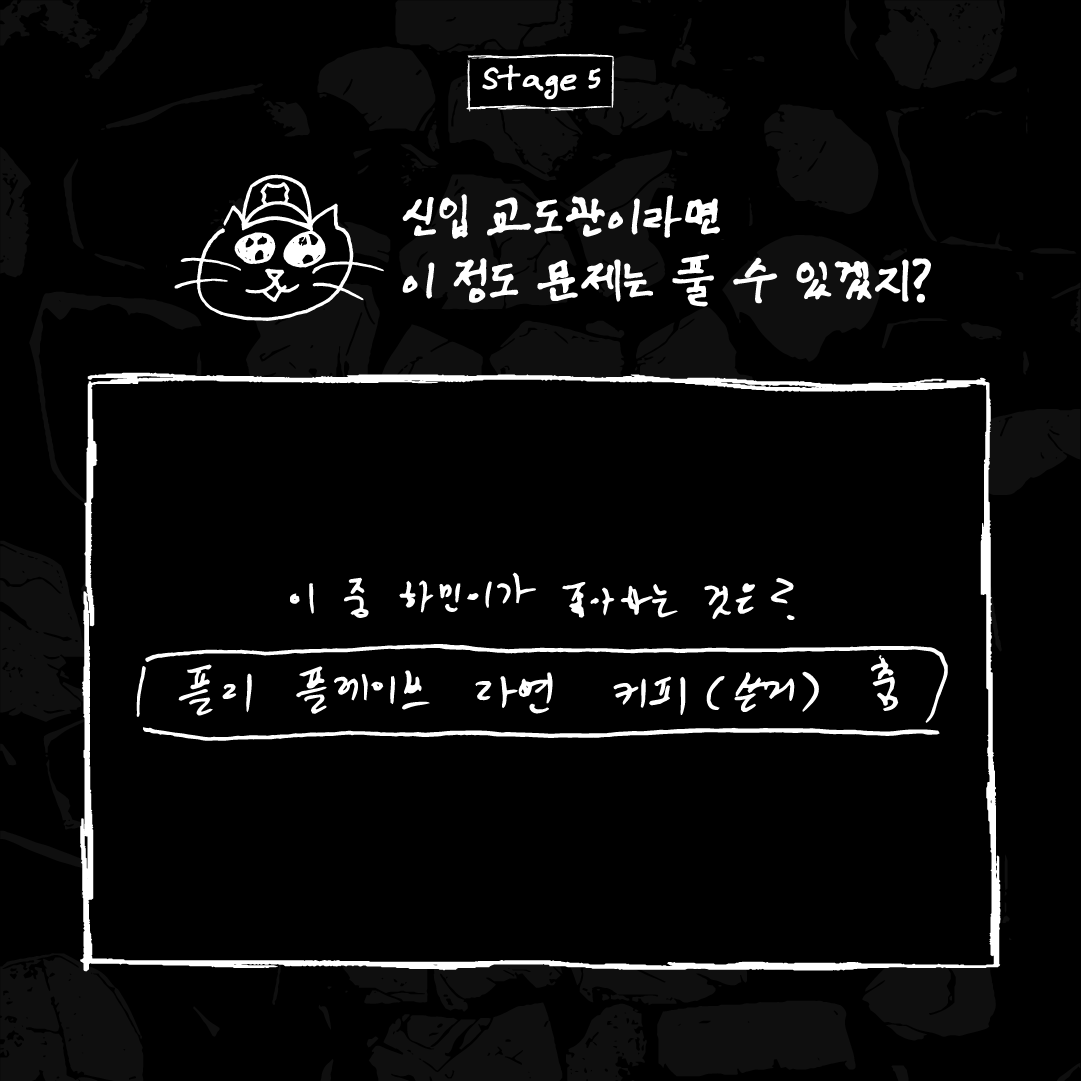 Stage 5
신입 교도관이라면
이 정도 문제는 풀 수 있겠지?
이 중 하민이가 좋아하는 것은?
플리 플레이브 라면 커피 (산미) 춤